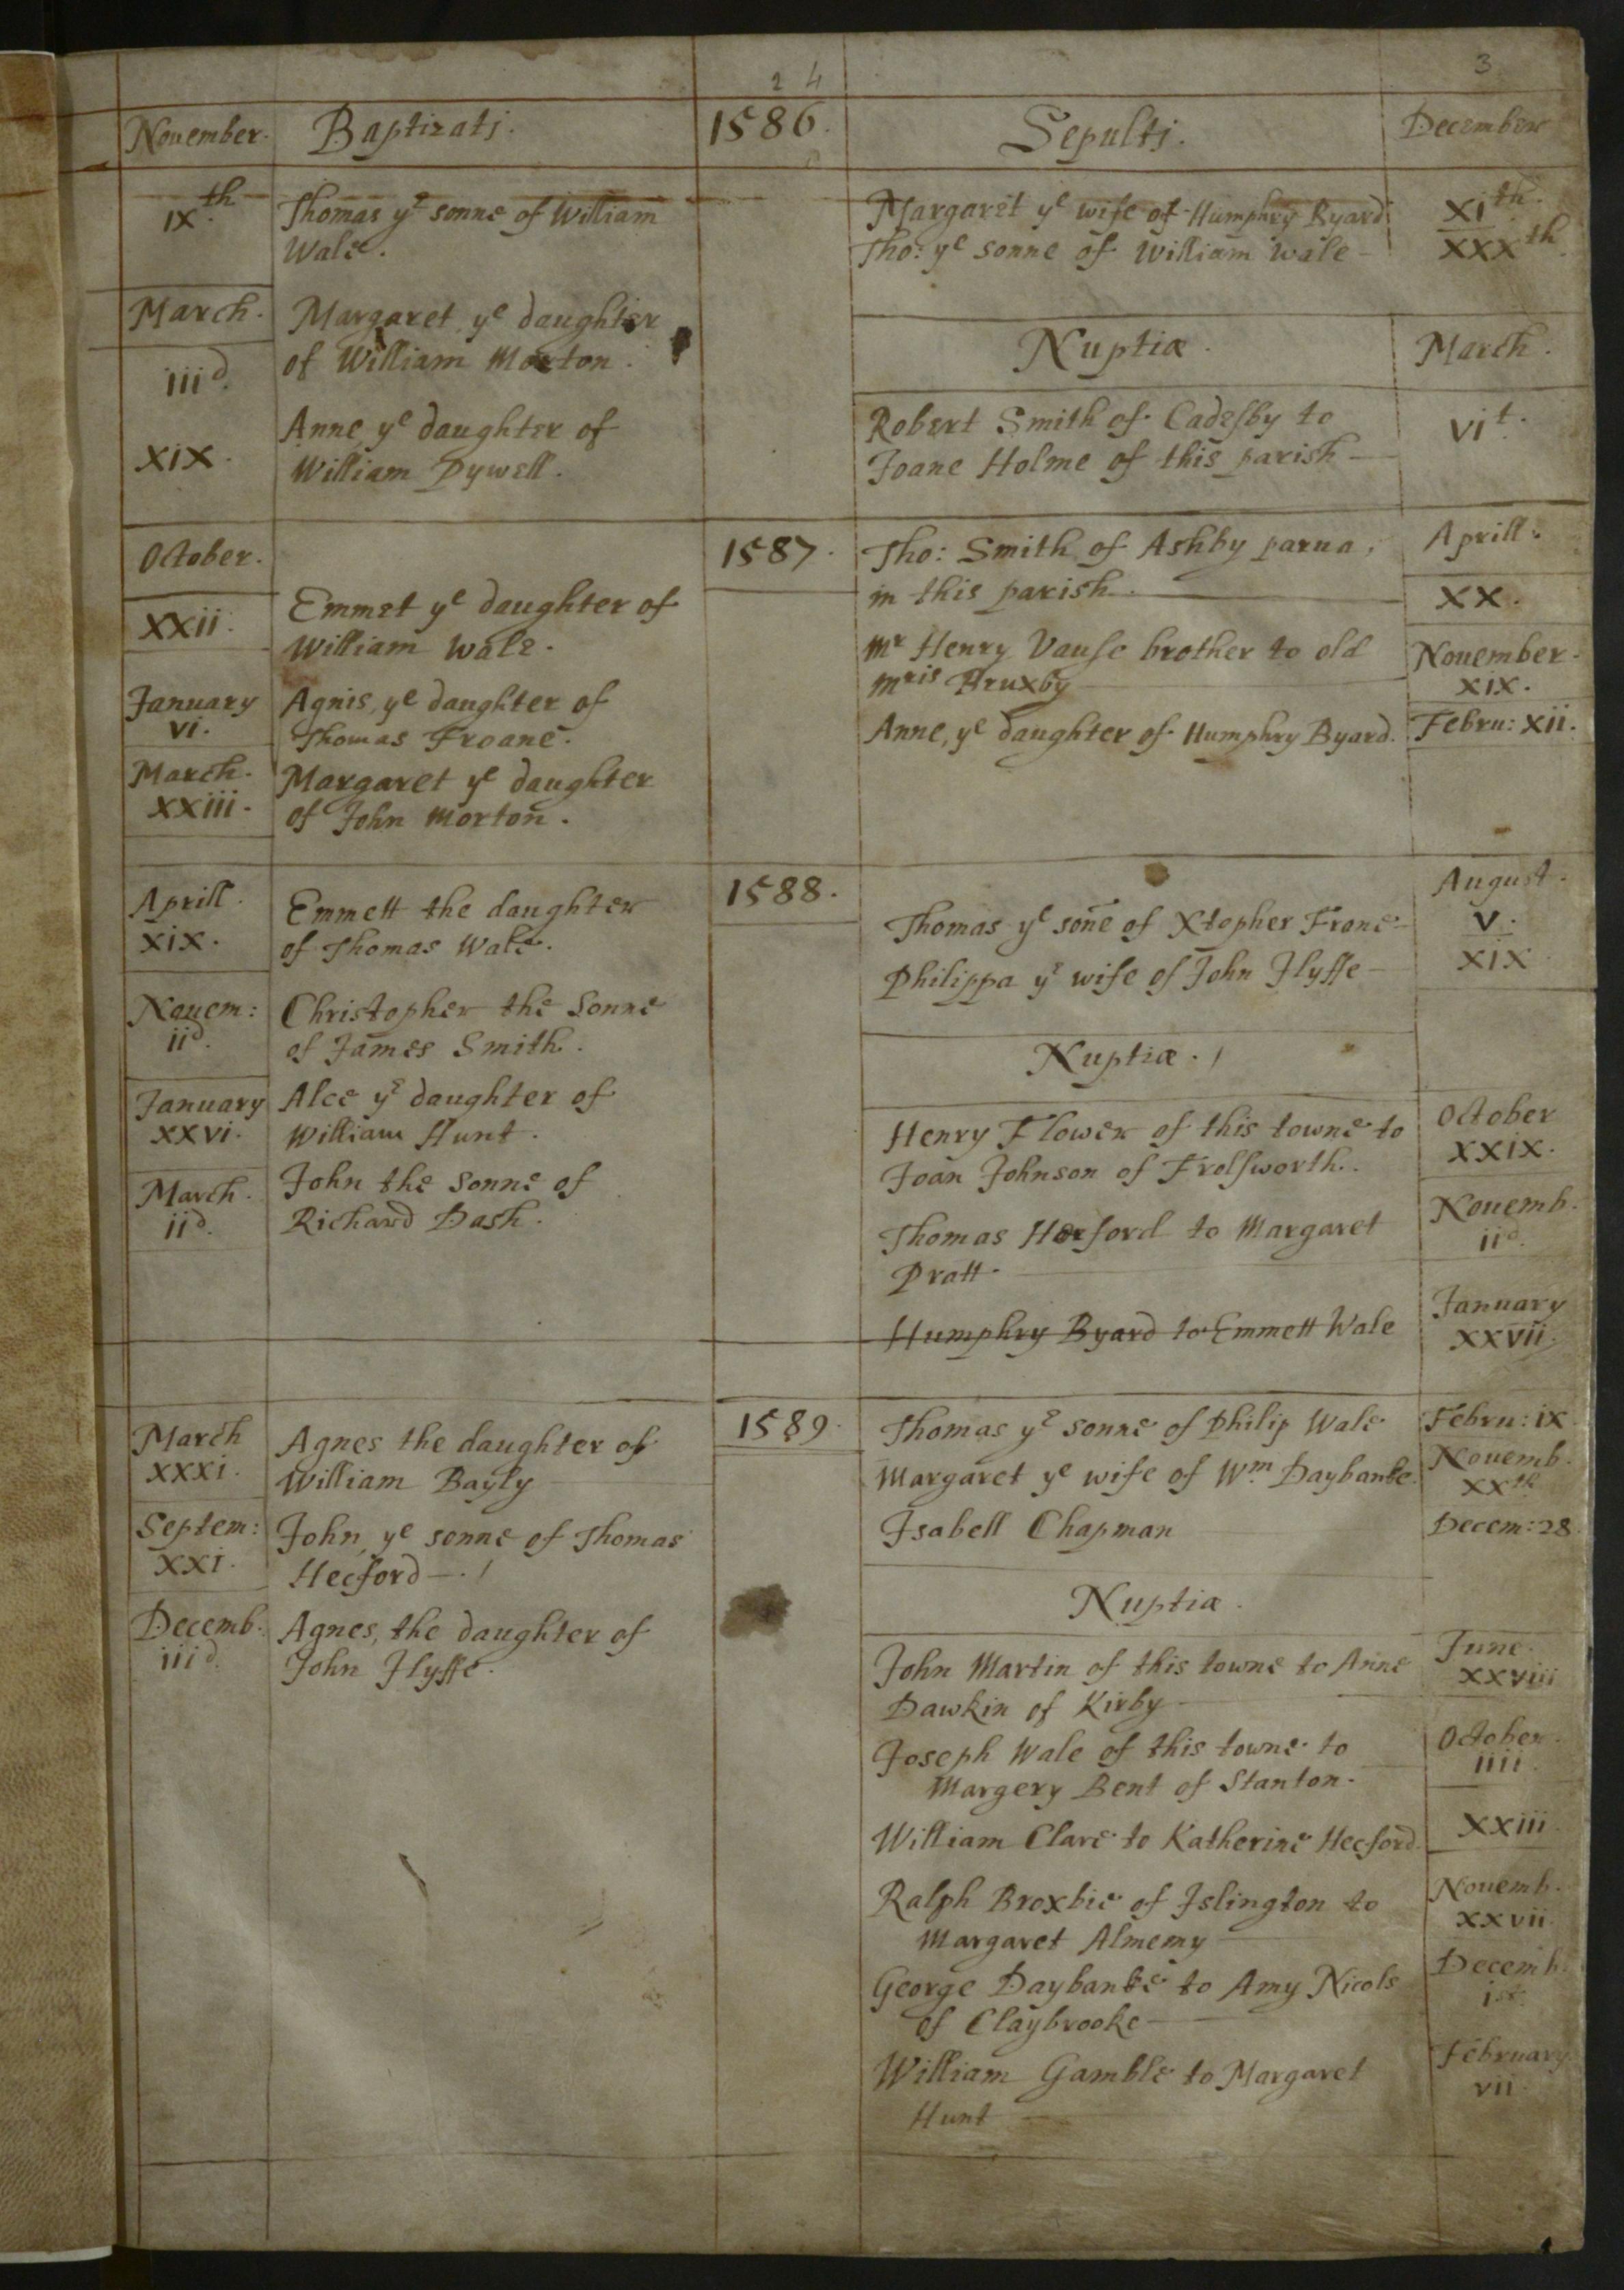 2 4
3
November.
Baptizatj.
1586.
Sepultj.
December
ixth.
Thomas ye sonne of William
Wale.
March.
Margaret ye daughter
of William Morton.
iiid.
xix.
Anne ye daughter of
William Dywell.
Margaret ye wife of Humphry Byard
xith.
Tho: ye sonne of William Wale
xxxth.
Nuptiæ.
March.
Robert Smith of Cadesby to
Joane Holme of this parish
vit.
October.
xxii.
Emmet ye daughter of
William Wale.
January
vi.
Agnis, ye daughter of
Thomas Froane.
March.
xxiii.
Margaret ye daughter
of John Morton.
1587.
Tho: Smith of Ashby parua,
in this parish.
Aprill.
xx.
Mr Henry Vause brother to old
Mris Bruxby
November.
xix.
Anne, ye daughter of Humphry Byard.
Febru: xii.
Aprill.
xix.
Emmett the daughter
of Thomas Wale.
Nouem:
iid.
Christopher the Sonne
of James Smith.
January
xxvi.
Alce ye daughter of
William Hunt.
March.
iid.
John the Sonne of
Richard Dash.
1588.
Thomas ye soñe of Xtopher Frone
August.
v.
Philippa ye wife of John Ilyffe
xix
Nuptiæ.
Henry Flower of this towne to
Joan Johnson of Frolsworth.
October
xxix.
Thomas Herford to Margaret
Pratt.
Nouemb.
iid.
Humphry Byard to Emmett Wale
January
xxvii.
March
xxxi.
Agnes the daughter of
William Bayly
Septem:
xxi.
John, ye sonne of Thomas
Hecford
Decemb.
iiid.
Agnes, the daughter of
John Ilyffe.
1589.
Thomas ye sonne of Philip Wale
Febru: ix
Margaret ye wife of Wm. Daybanke.
Nouemb.
xxth
Isabell Chapman
Decem: 28
Nuptiæ.
John Martin of this towne to Anne
Dawkin of Kirby
June.
xxviii
Joseph Wale of this towne to
Margery Bent of Stanton.
October.
iiii.
William Clare to Katherine Hecford.
xxiii.
Ralph Broxbie of Islington to
Margaret Almemy
Nouemb.
xxvii.
George Daybanke to Amy Nicols
of Claybrooke
Decemb.
ist.
William Gamble to Margaret
Hunt
February
vii.